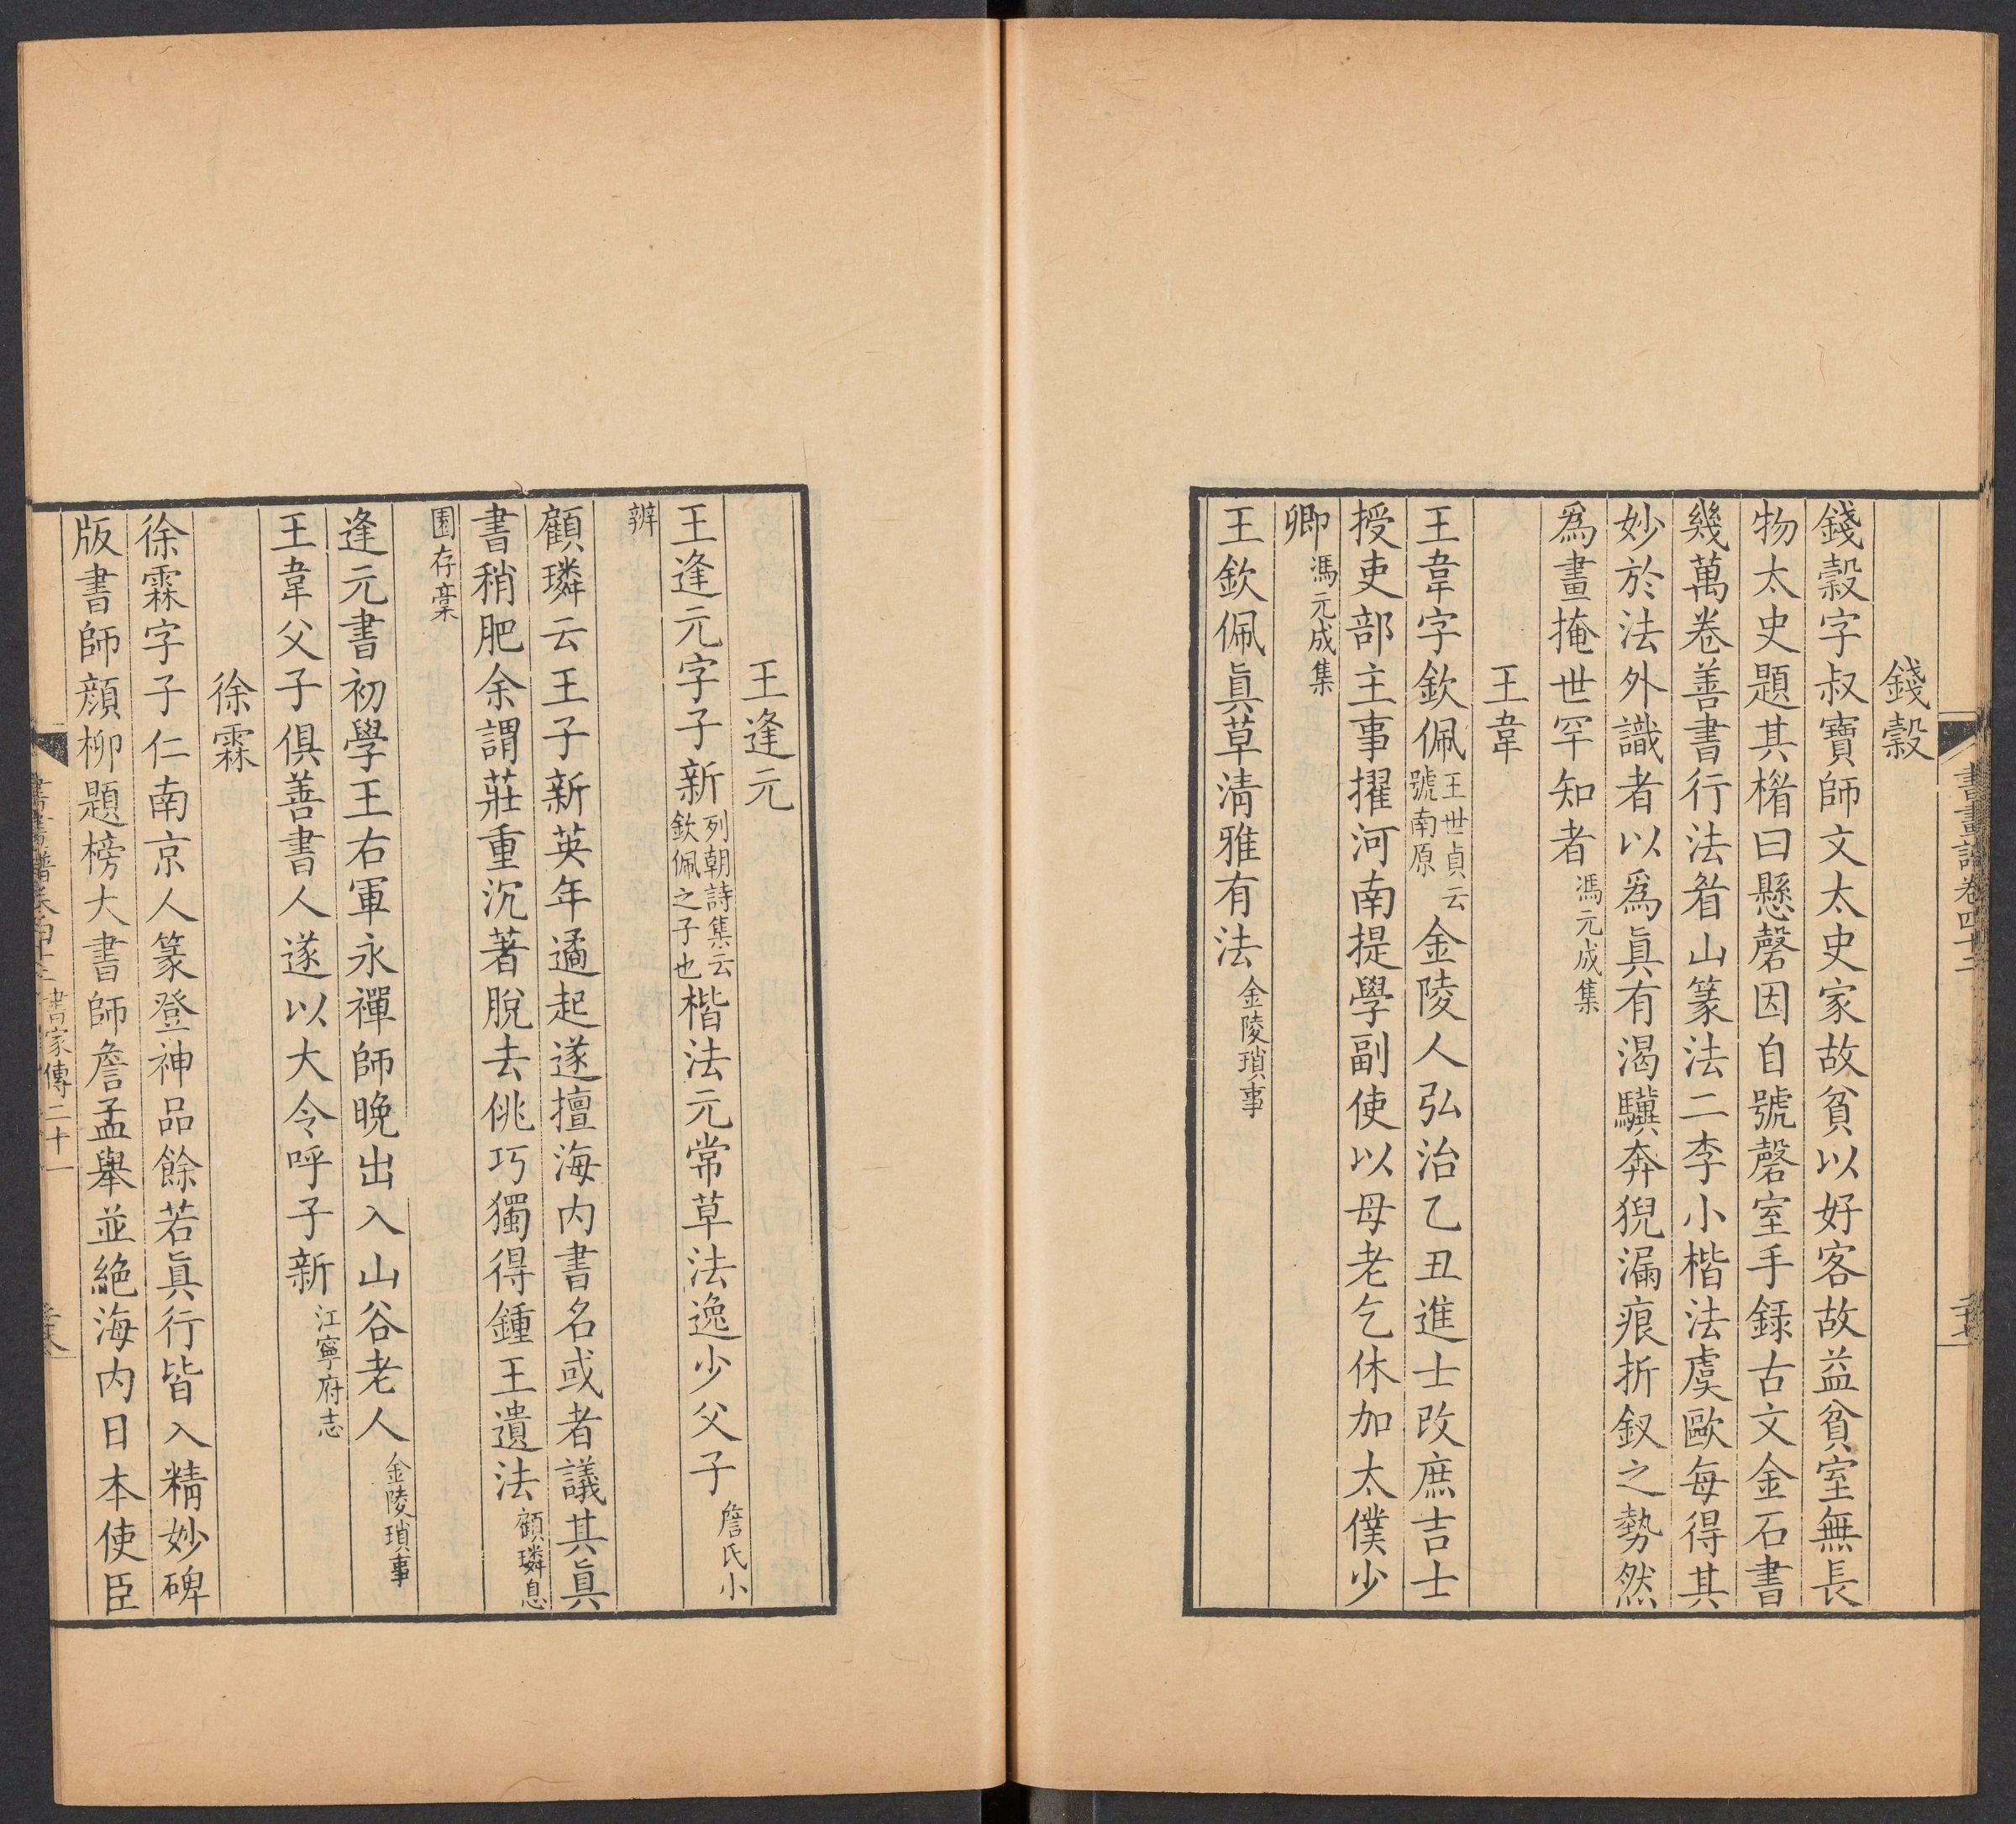 書畫譜卷四十二
錢穀
錢穀字叔寶師文太史家故貧以好客故益貧室無長
物太史題其楣曰懸磬因自號磬室手録古文金石書
幾萬卷善書行法眉山篆法二李小楷法虞歐每得其
妙於法外識者以爲眞有渴驥奔猊漏痕折釵之勢然
爲畫掩世罕知者馮元成集
王韋
王韋字欽佩王世貞云號南原金陵人弘治乙丑進士改庶吉士
授吏部主事擢河南提學副使以母老乞休加太僕少
卿馮元成集
王欽佩眞草淸雅有法金陵瑣事
王逢元
王逢元字子新列朝詩集云欽佩之子也楷法元常草法逸少父子詹氏小
辨
顧璘云王子新英年遹起遂擅海内書名或者議其眞
書稍肥余謂莊重沉著脫去佻巧獨得鍾王遺法顧璘息
園存稾
逢元書初學王右軍永禪師晚出入山谷老人金陵瑣事
王韋父子俱善書人遂以大令呼子新江寧府志
徐霖
徐霖字子仁南京人篆登神品餘若眞行皆入精妙碑
版書師顔柳題榜大書師詹孟舉並絶海内日本使臣
書家傳二十一